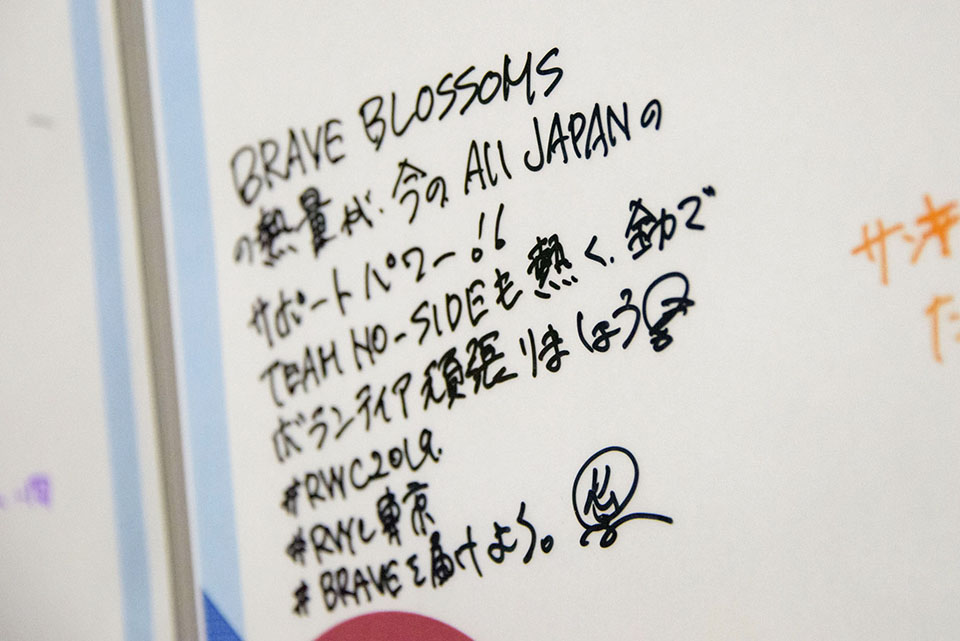 BRAVE BLOSSOMS
の熱量が、今の All JAPANの
サポートパワー!!
TEAM NO-SIDEも熱く、全力で
ボランティア頑張りましょう
#RWC2019.
#RWC東京
#BRAVEを届けよう。
サンキ
た